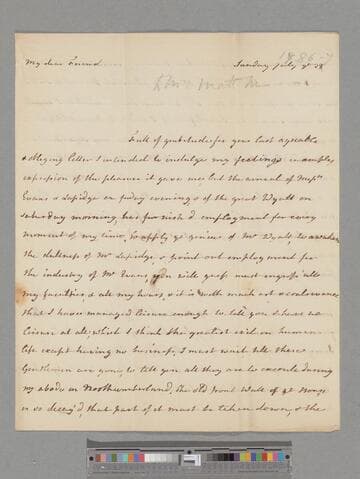 My dear Friend Sunday July ye 28
1786-7
Full of gratitude for your last agreable
& obliging letter I intended to indulge my feelings in ample
expression of the pleasure it gave me, but the arrival of Messrs
Evans & Lapidge on friday evening & of the great Wyatt on
saturday morning, has furnish'd employment for every
moment of my time, to apply ye genius of Mr Wyatt, to awaken
the dullness of Mr Lapidge, & point out employment for
the industry of Mr Evans you will guess must engross all
my faculties & all my hours, & it is with much art & contrivance
that I have managed leisure enough to tell you I have no
leisure at all, which I think the greatest evil in human
life except having no business, I must wait till these
Gentlemen are gone, to tell you all they are to execute during
my abode in Northumberland, the old front Wall of ye House
is so decay'd, that part of it must be taken down, & the